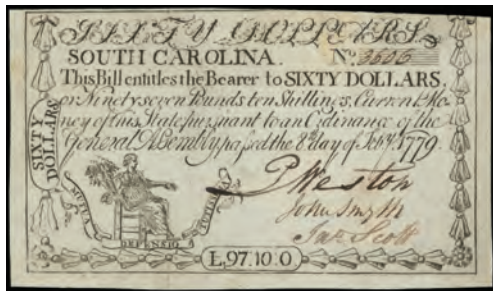 SIXTY DOLLARS.
SOUTH CAROLINA. No. 3606
This Bill entitles the Bearer to SIXTY DOLLARS.
or Ninety seven Pounds ten Shillings, Current Mo-
ney of this State pursuant to an Ordinance of the
General Assembly passed the 8th day of Feby. 1779.
SIXTY
DOLLARS
P Weston
John Smyth
Jas. Scott
MUTUA DEFENSIO
L,97.10.0